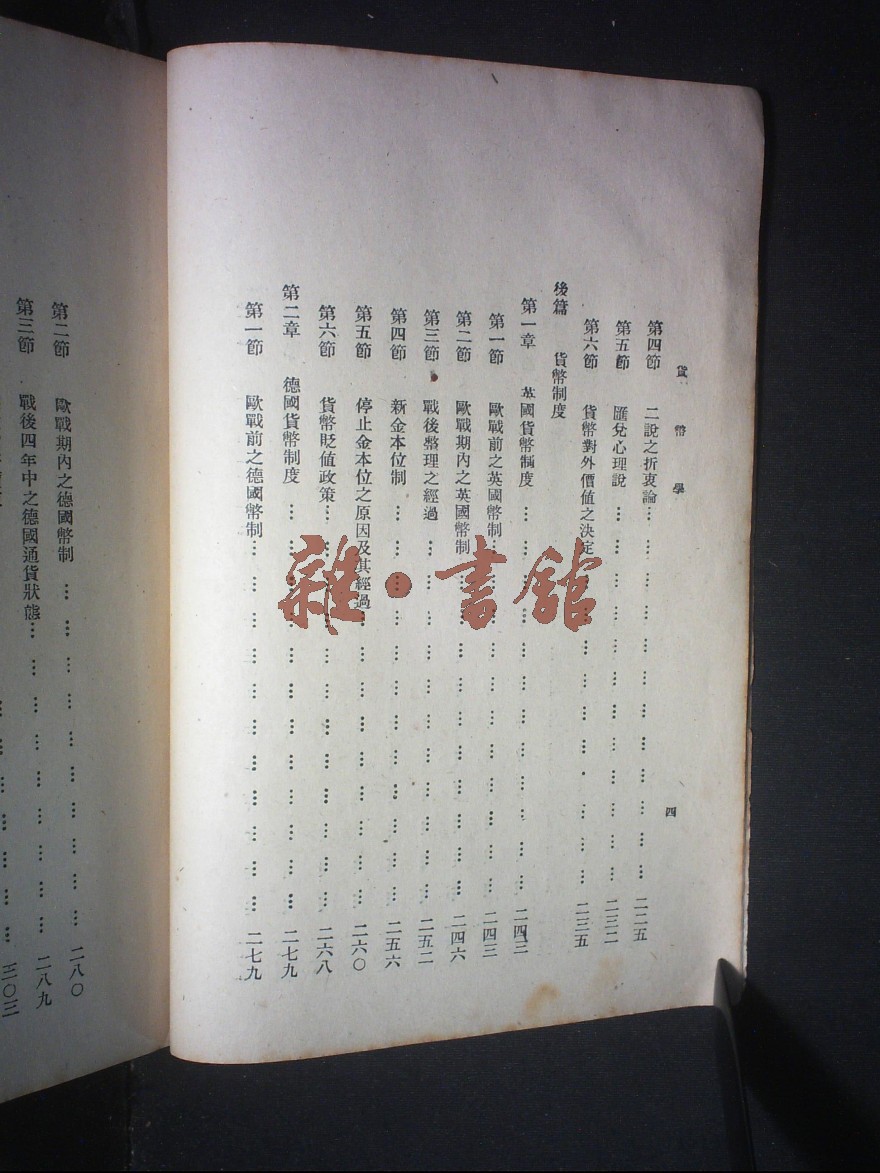 貨幣學
四
第四節 二說之折衷論………………………………二二五
第五節 匯兌心理說………………………………二三二
第六節 貨幣對外價值之決定………………………………二三五
後篇 貨幣制度
第一章 英國貨幣制度………………………………二四三
第一節 歐戰前之英國幣制………………………………二四三
第二節 歐戰期內之英國幣制………………………………二四六
第三節 戰後整理之經過………………………………二五二
第四節 新金本位制………………………………二五六
第五節 停止金本位之原因及其經過………………………………二六〇
第六節 貨幣貶値政策………………………………二六八
第二章 德國貨幣制度………………………………二七九
第一節 歐戰前之德國幣制………………………………二七九
第二節 歐戰期內之德國幣制………………………………二八〇
第三節 戰後四年中之德國通貨狀態………………………………二八九
三〇三
雜·書館